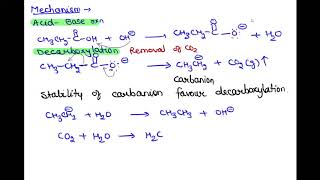 Mechanism →
Acid-Base rxn
CH₃CH₂-C(=O)-OH + OH⊖ → CH₃CH₂-C(=O)-O⊖ + H₂O
Decarboxylation Removal of CO₂
CH₃-CH₂-C(=O)-O⊖ → CH₃CH₂⊖ + CO₂(g)↑
carbanion
Stability of carbanion favour decarboxylation
CH₃CH₂⊖ + H₂O → CH₃CH₃ + OH⊖
CO₂ + H₂O → H₂C